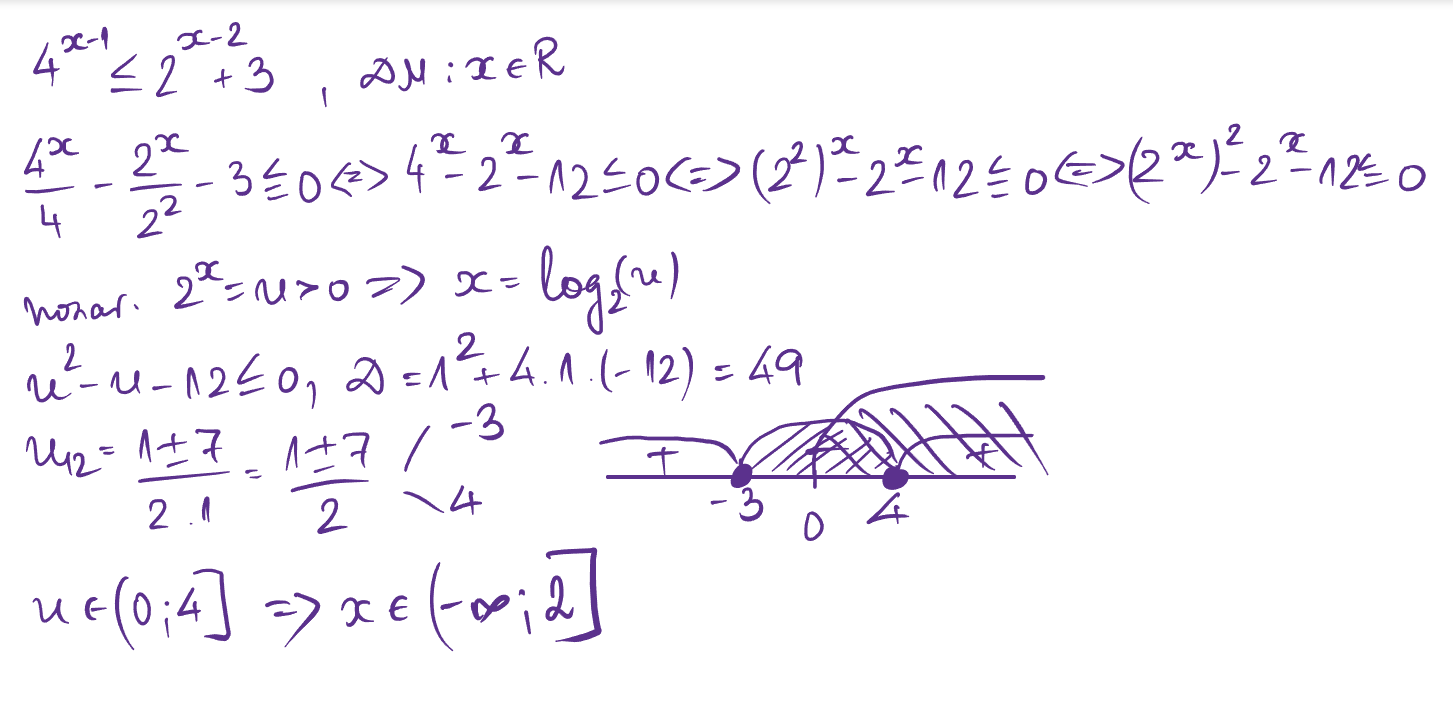 4^{x-1} ≤ 2^{x-2} + 3 , ДМ : x ∈ R
\frac{4^x}{4} - \frac{2^x}{2^2} - 3 ≤ 0 <=> 4^x - 2^x - 12 ≤ 0 <=> (2^2)^x - 2^x - 12 ≤ 0 <=> (2^x)^2 - 2^x - 12 ≤ 0
полаг. 2^x = u > 0 => x = log_2(u)
u^2 - u - 12 ≤ 0, D = 1^2 + 4.1.(-12) = 49
u_{12} = \frac{1 ± 7}{2.1} = \frac{1 ± 7}{2} / -3 \ 4
+ - +
-3 0 4
u ∈ (0;4] => x ∈ (-∞;2]